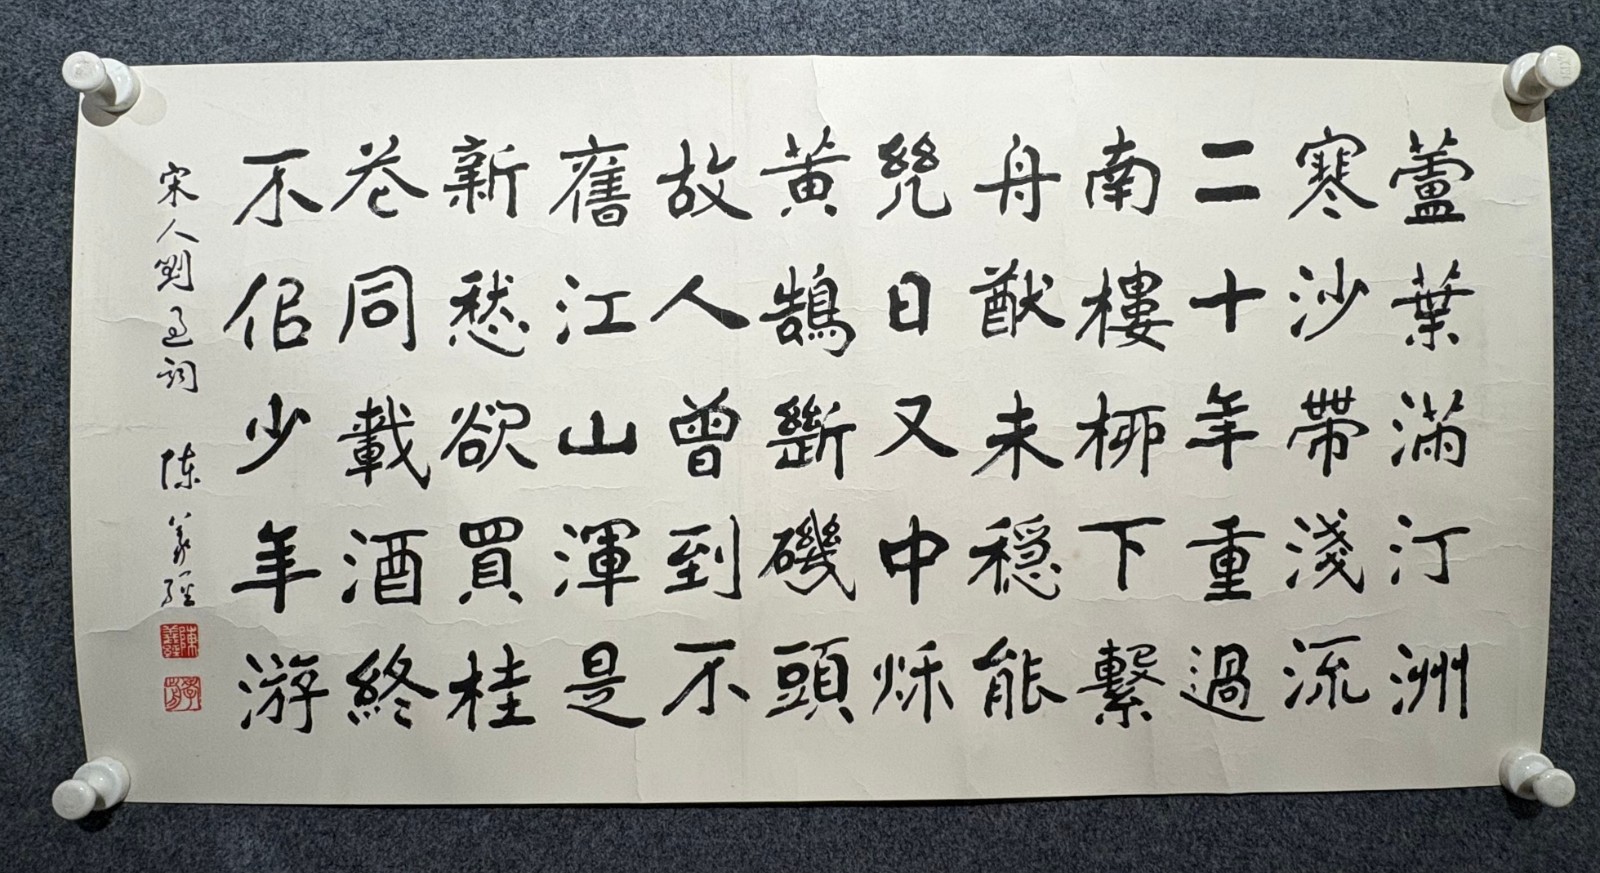 蘆葉滿汀洲
寒沙帶淺流
二十年重過
南樓柳下繫
舟猷未穩能
幾日又中秌
黃鵠斷磯頭
故人曾到不
舊江山渾是
新愁欲買桂
花同載酒終
不佀少年游
宋人劉過詞 陳義經
陳義經